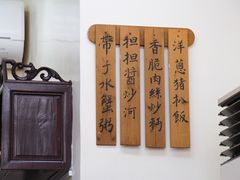 洋蔥豬扒飯
香脆肉絲炒麵
担担醬炒河
帶子水蟹粥